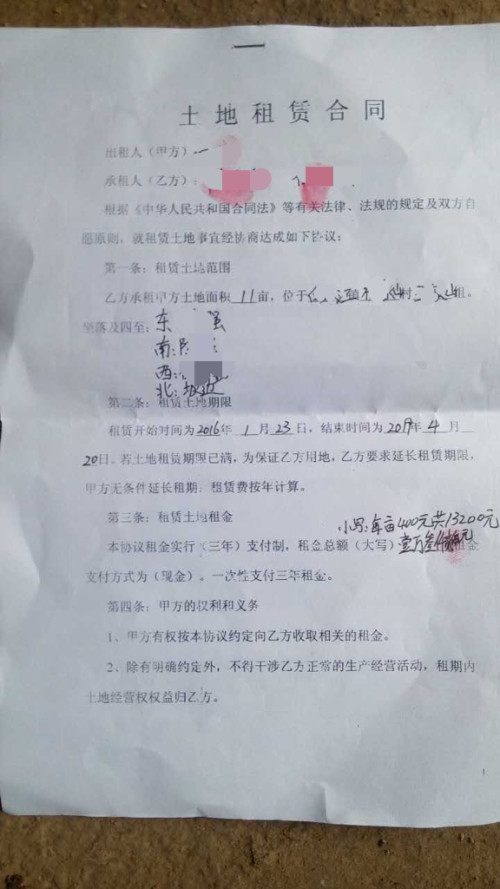 土地租赁合同
出租人（甲方）
承租人（乙方）：
根据《中华人民共和国合同法》等有关法律、法规的规定及双方自
愿原则，就租赁土地事宜经协商达成如下协议：
第一条：租赁土地范围
乙方承租甲方土地面积 11 亩，位于 村 组，
坐落及四至：东
南:
西:
北: 坡边
第二条：租赁土地期限
租赁开始时间为2016年 1 月 23 日，结束时间为2019年 4 月
20日。若土地租赁期限已满，为保证乙方用地，乙方要求延长租赁期限，
甲方无条件延长租期，租赁费按年计算。
第三条：租赁土地租金
小写:每亩400元共13200元
本协议租金实行（三年）支付制，租金总额（大写）壹万叁仟 元 租金
支付方式为（现金）。一次性支付三年租金。
第四条：甲方的权利和义务
1、甲方有权按本协议约定向乙方收取相关的租金。
2、除有明确约定外，不得干涉乙方正常的生产经营活动，租期内
土地经营权权益归乙方。